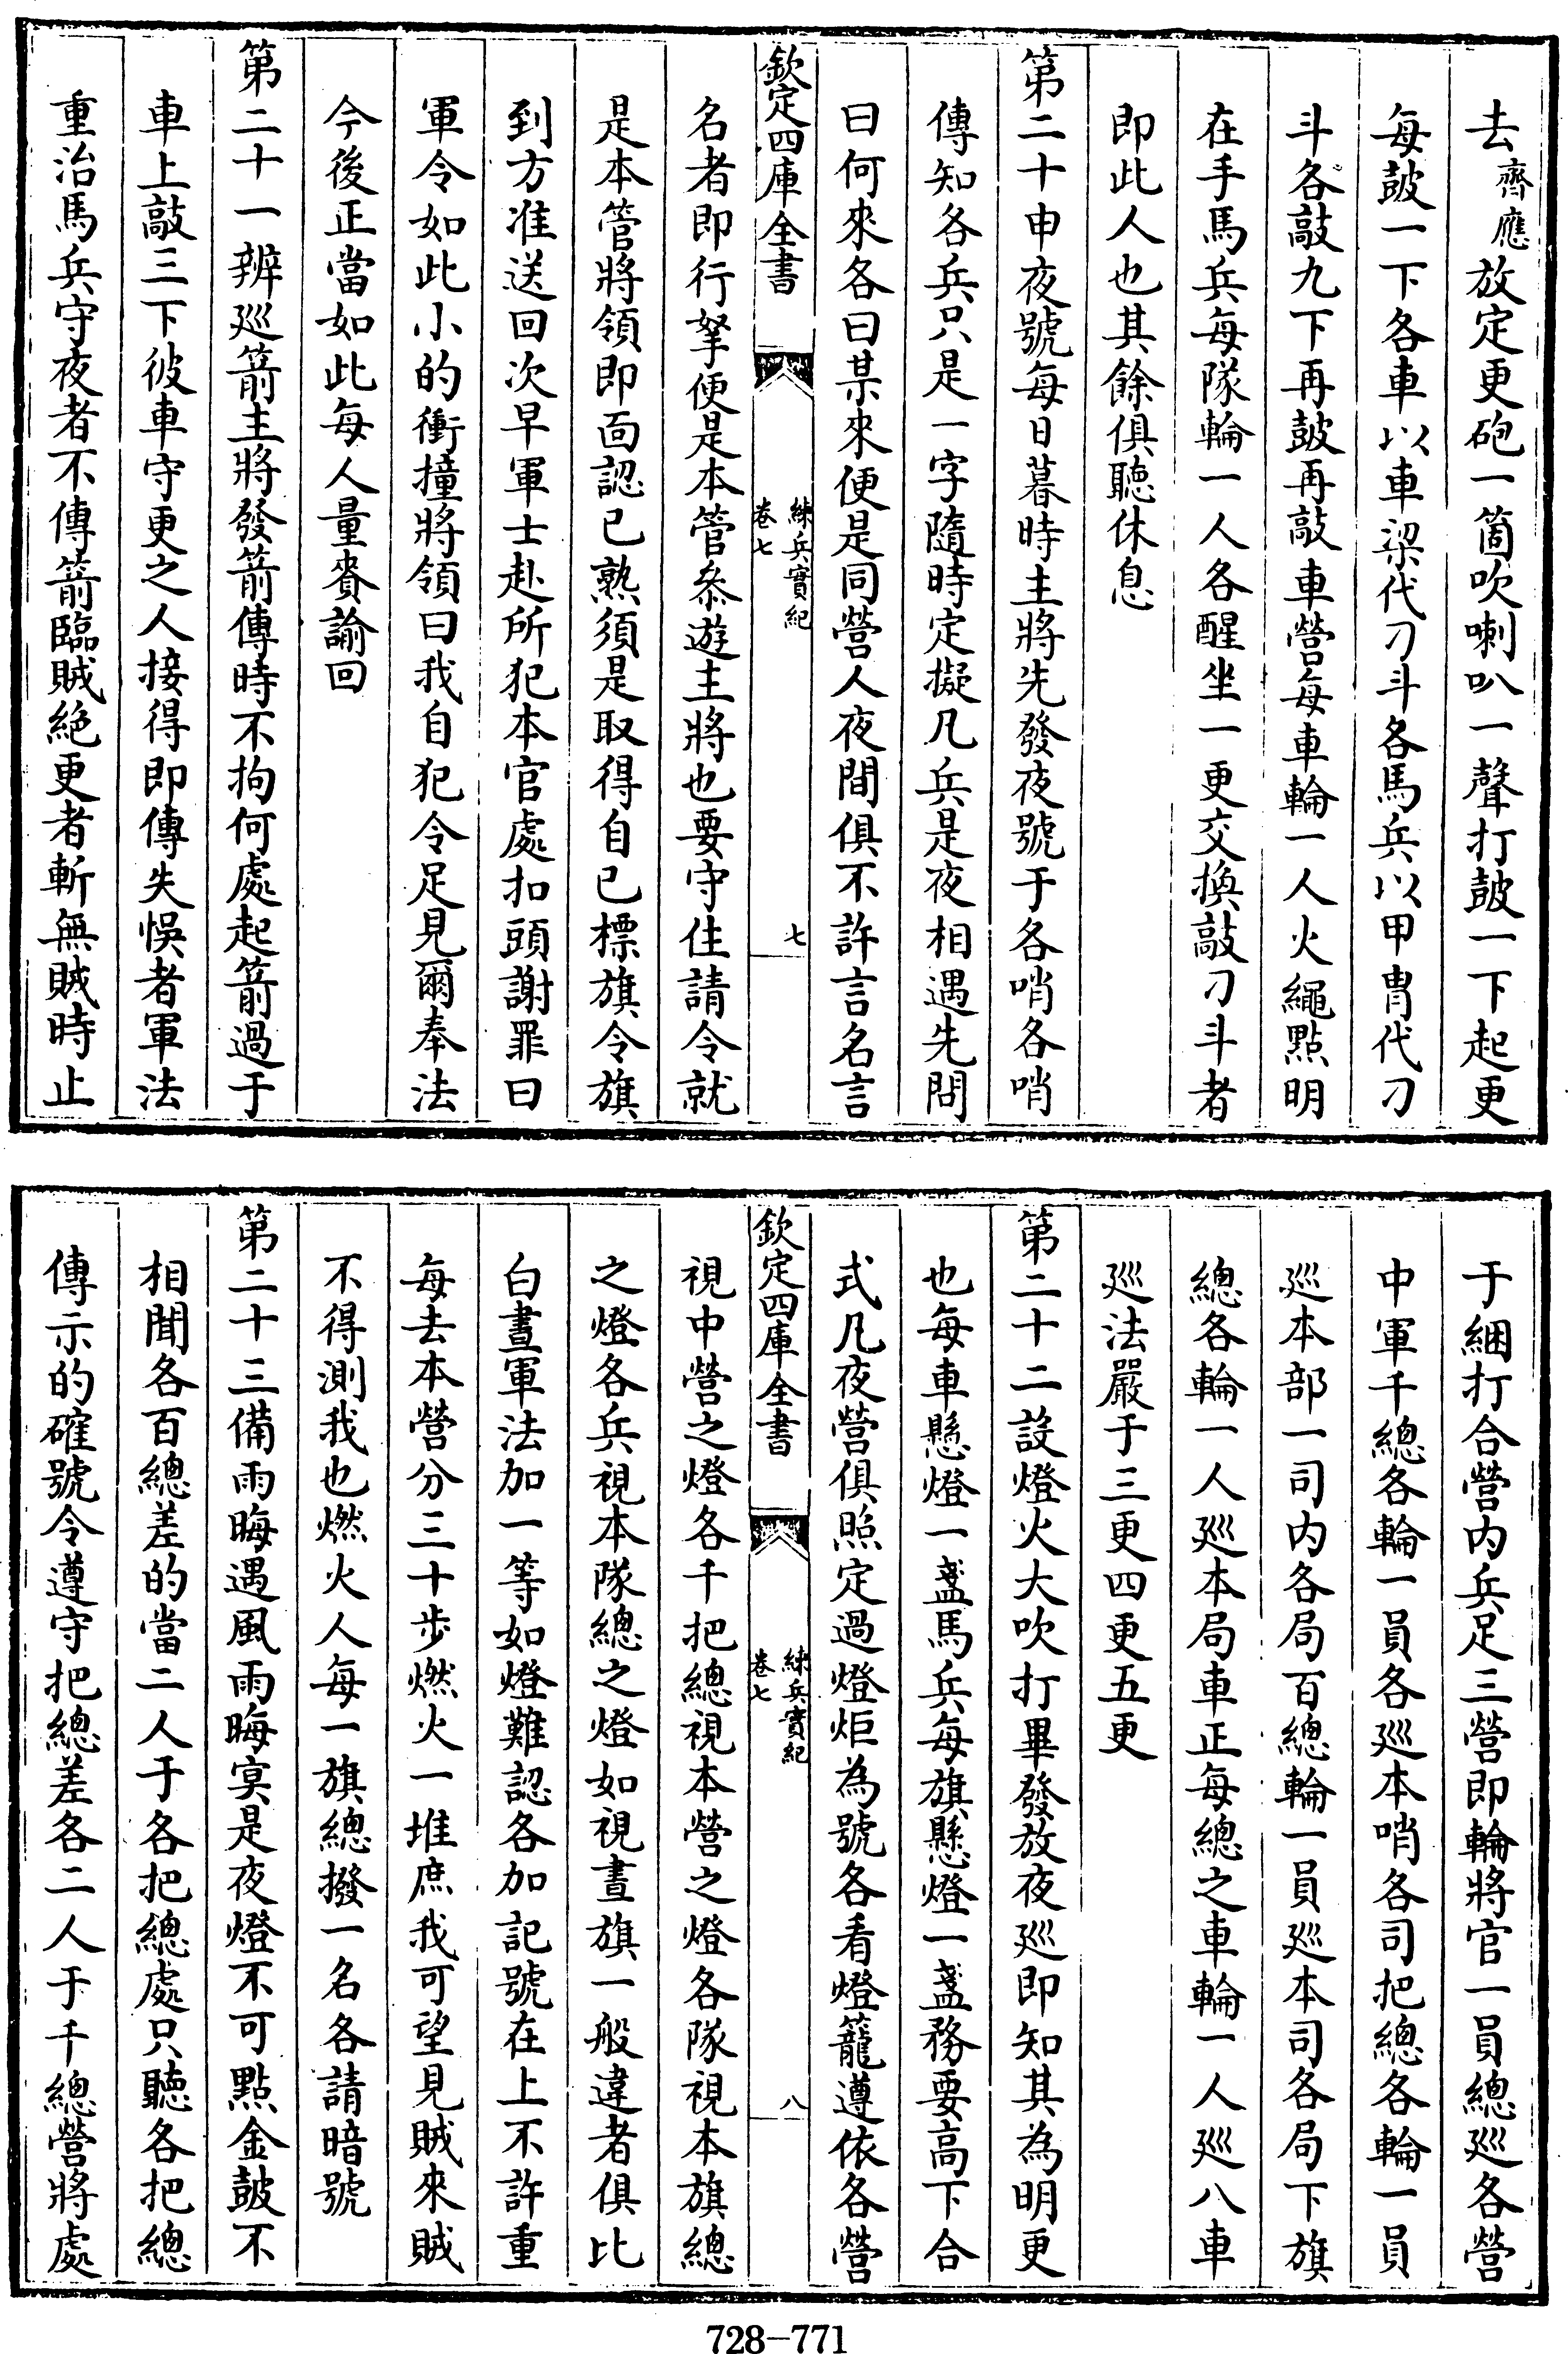 去齊應放定更砲一箇吹喇叭一聲打皷一下起更
每皷一下各車以車梁代刁斗各馬兵以甲冑代刁
斗各敲九下再皷再敲車營每車輪一人火繩點明
在手馬兵每隊輪一人各醒坐一更交換敲刁斗者
即此人也其餘俱聽休息
第二十申夜號每日暮時主將先發夜號于各哨各哨
傳知各兵只是一字隨時定擬凡兵是夜相遇先問
曰何來各曰某來便是同營人夜間俱不許言名言
欽定四庫全書
練兵實紀
卷七
七
名者即行拏便是本管叅遊主將也要守住請令就
是本管將領即面認已熟須是取得自已標旗令旗
到方准送回次早軍士赴所犯本官處扣頭謝罪曰
軍令如此小的衝撞將領曰我自犯令足見爾奉法
今後正當如此每人量賚諭回
第二十一辨廵箭主將發箭傳時不拘何處起箭過于
車上敲三下彼車守更之人接得即傳失悞者軍法
重治馬兵守夜者不傳箭臨賊絕更者斬無賊時止
于綑打合營内兵足三營即輪將官一員總廵各營
中軍千總各輪一員各廵本哨各司把總各輪一員
廵本部一司内各局百總輪一員廵本司各局下旗
總各輪一人廵本局車正每總之車輪一人廵八車
廵法嚴于三更四更五更
第二十二設燈火大吹打畢發放夜廵即知其為明更
也每車懸燈一盞馬兵每旗懸燈一盞務要高下合
式凡夜營俱照定過燈炬為號各看燈籠遵依各營
欽定四庫全書
練兵實紀
卷七
八
視中營之燈各千把總視本營之燈各隊視本旗總
之燈各兵視本隊總之燈如視晝旗一般違者俱比
白晝軍法加一等如燈難認各加記號在上不許重
每去本營分三十步燃火一堆庶我可望見賊來賊
不得測我也燃火人每一旗總撥一名各請暗號
第二十三備雨晦遇風雨晦㝠是夜燈不可點金皷不
相聞各百總差的當二人于各把總處只聽各把總
傳示的確號令遵守把總差各二人于千總營將處
728-771